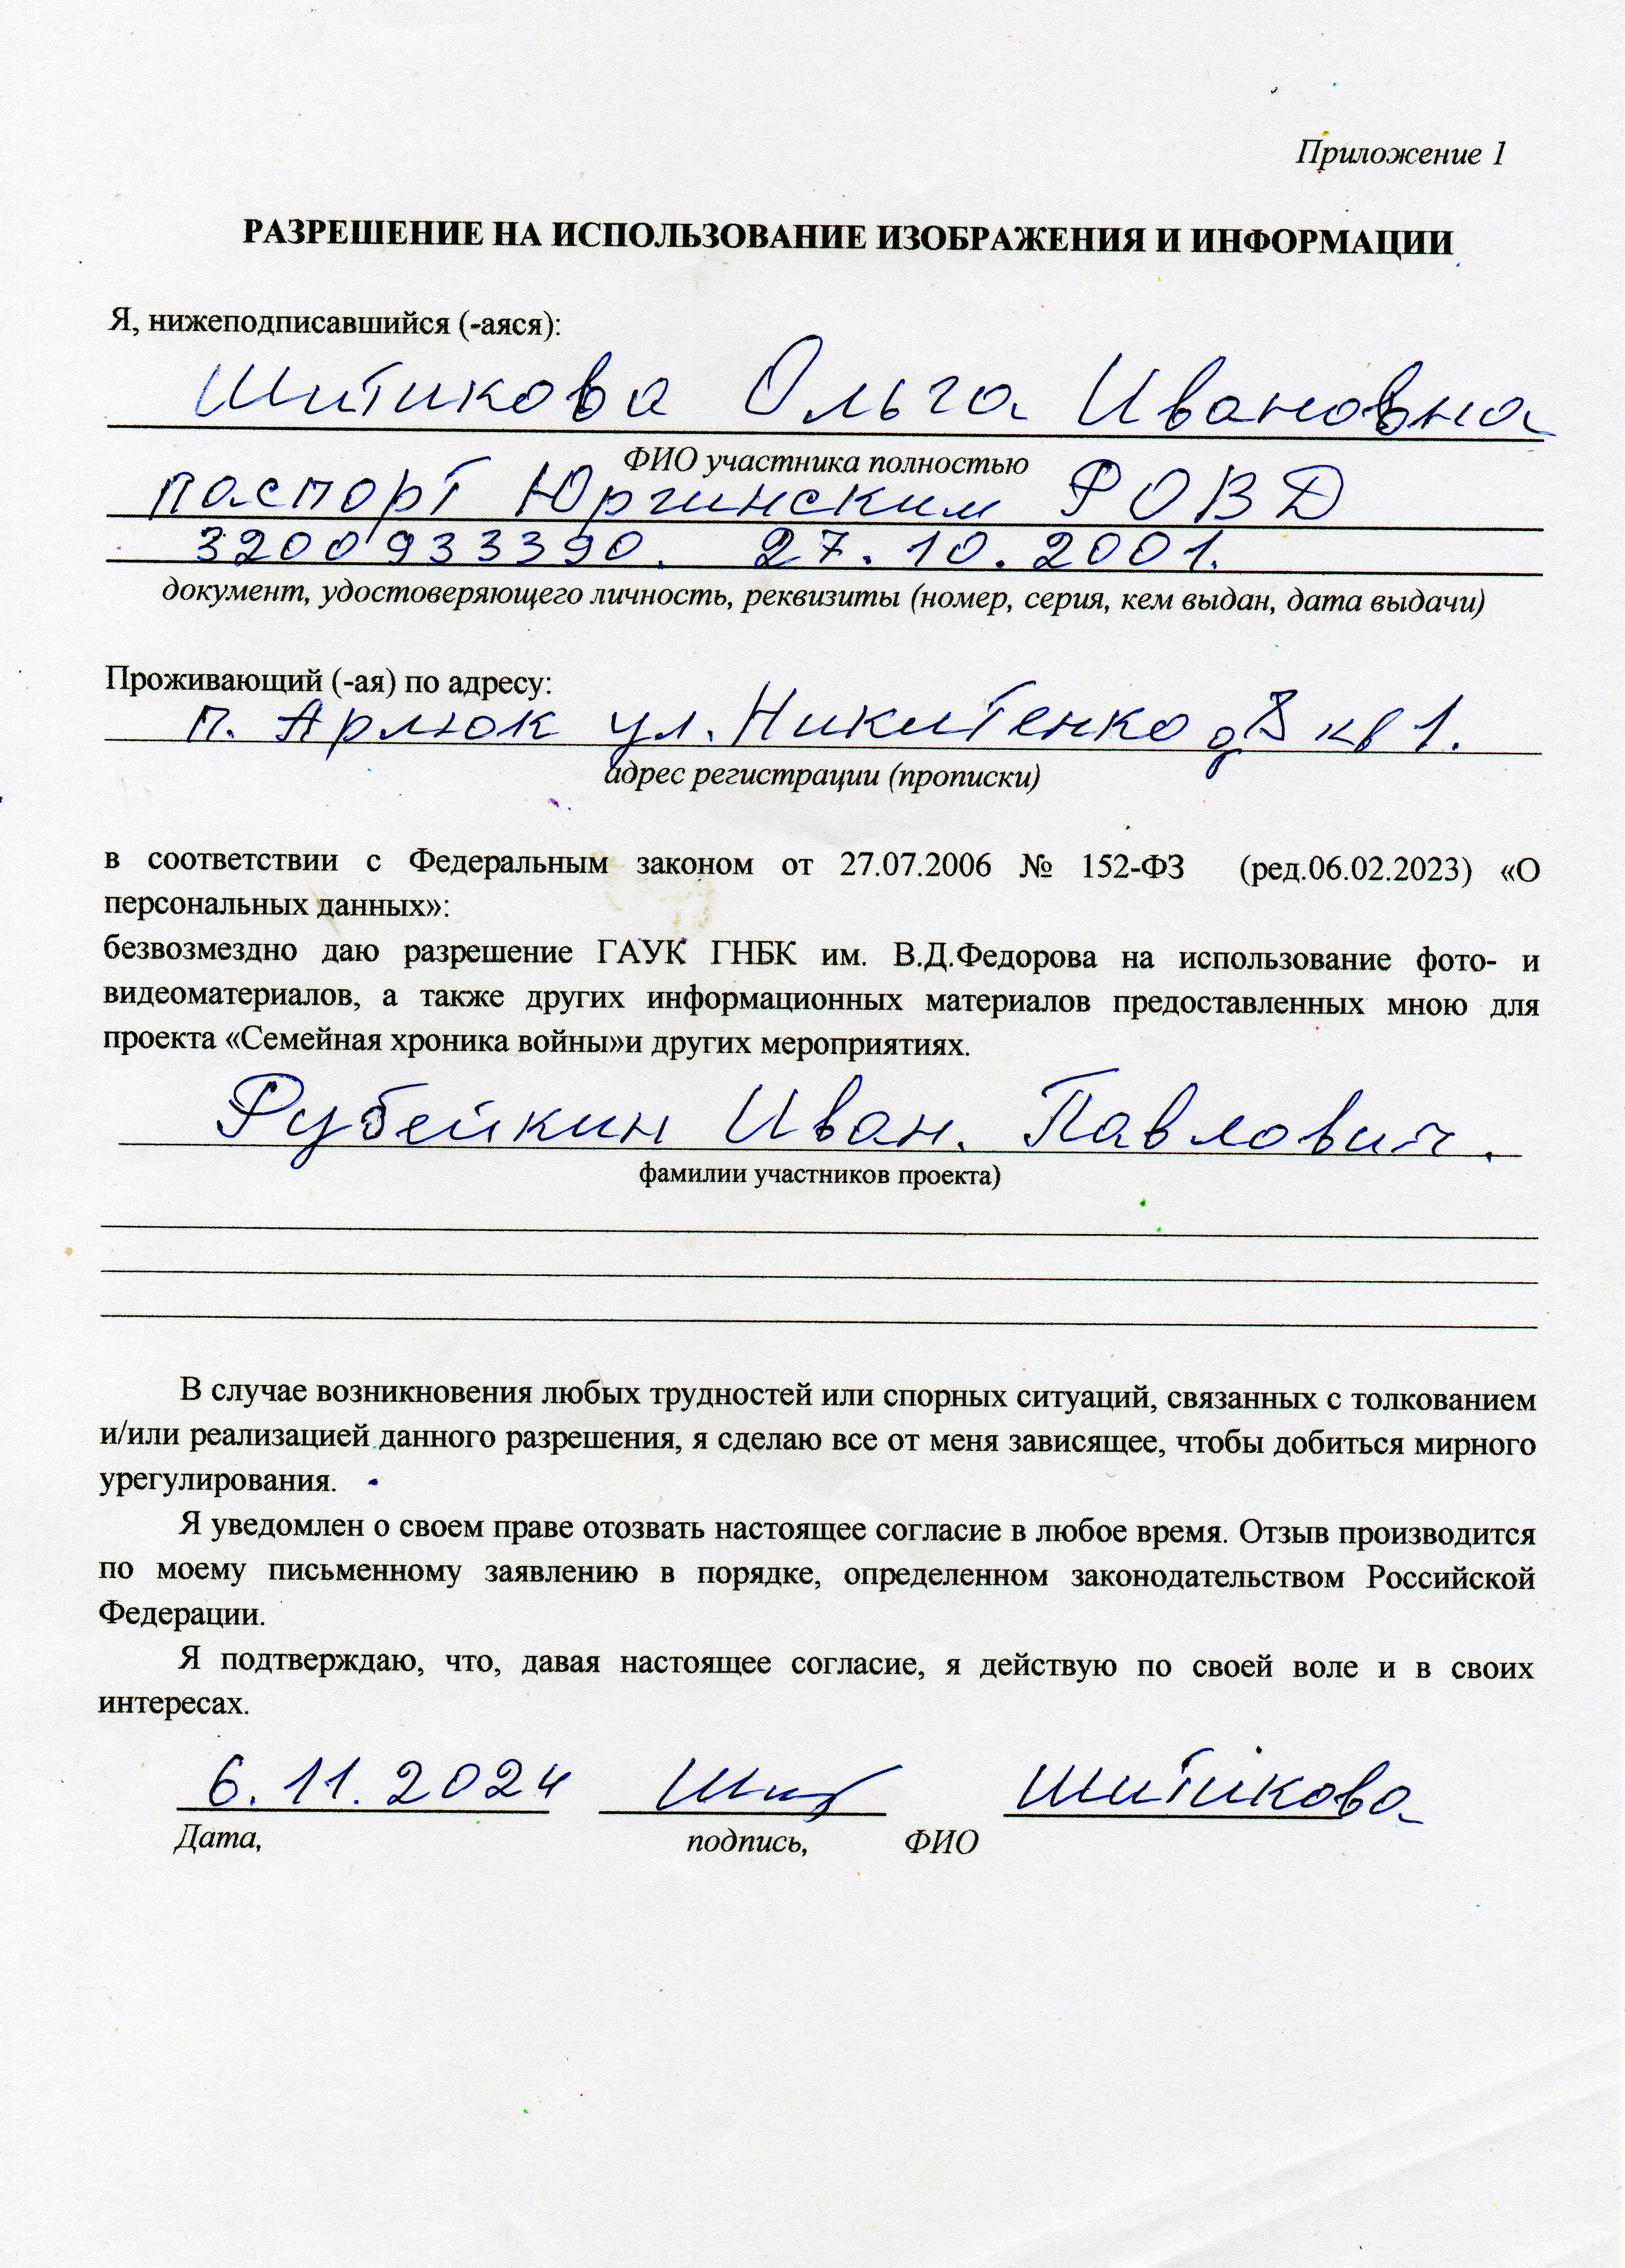 Приложение 1
РАЗРЕШЕНИЕ НА ИСПОЛЬЗОВАНИЕ ИЗОБРАЖЕНИЯ И ИНФОРМАЦИИ
Я, нижеподписавшийся (-аяся):
Шитикова Ольга Ивановна
ФИО участника полностью
паспорт Юргинским РОВД
3200933390. 27.10.2001.
документ, удостоверяющего личность, реквизиты (номер, серия, кем выдан, дата выдачи)
Проживающий (-ая) по адресу:
п. Арлюк ул. Никитенко кв 1.
адрес регистрации (прописки)
в соответствии с Федеральным законом от 27.07.2006 № 152-ФЗ (ред.06.02.2023) «О
персональных данных»:
безвозмездно даю разрешение ГАУК ГНБК им. В.Д.Федорова на использование фото- и
видеоматериалов, а также других информационных материалов предоставленных мною для
проекта «Семейная хроника войны»и других мероприятиях.
Рубейкин Иван. Павлович.
фамилии участников проекта)
В случае возникновения любых трудностей или спорных ситуаций, связанных с толкованием
и/или реализацией данного разрешения, я сделаю все от меня зависящее, чтобы добиться мирного
урегулирования.
Я уведомлен о своем праве отозвать настоящее согласие в любое время. Отзыв производится
по моему письменному заявлению в порядке, определенном законодательством Российской
Федерации.
Я подтверждаю, что, давая настоящее согласие, я действую по своей воле и в своих
интересах.
6.11.2024 Шитикова
Дата, подпись, ФИО